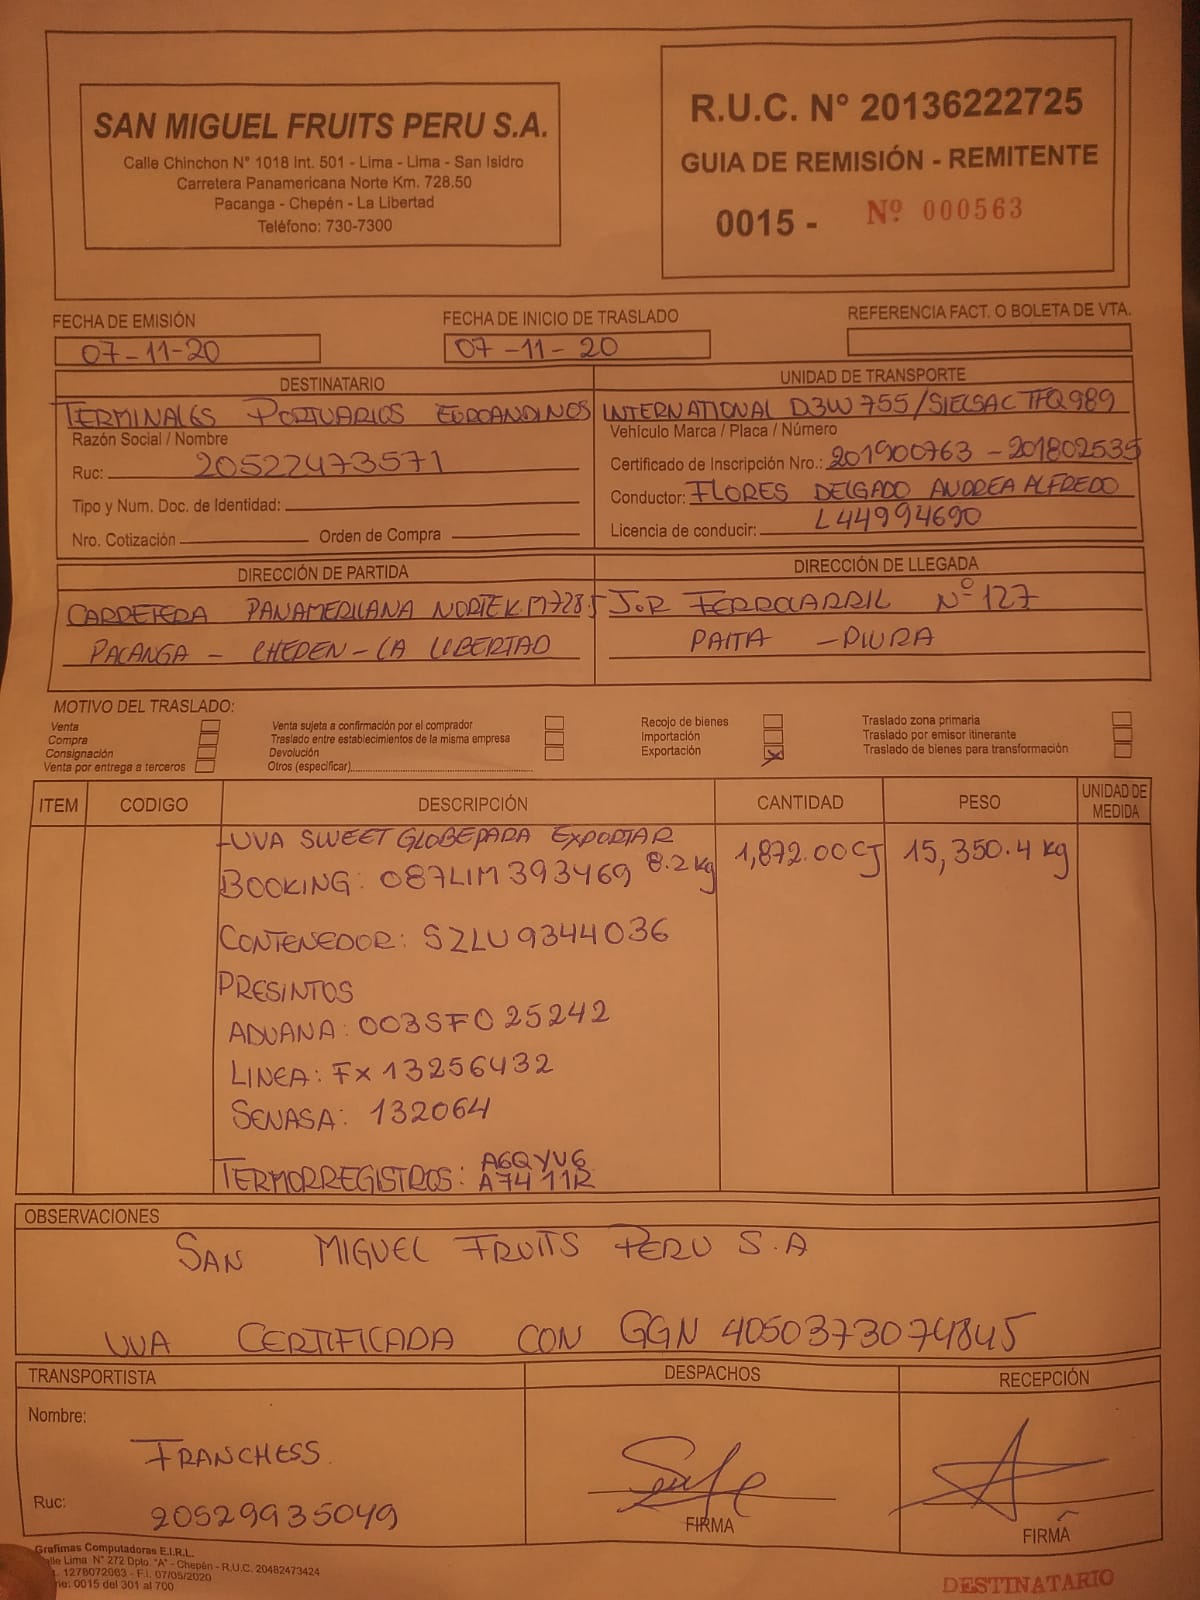 SAN MIGUEL FRUITS PERU S.A.
Calle Chinchon N° 1018 Int. 501 - Lima - Lima - San Isidro
Carretera Panamericana Norte Km. 728.50
Pacanga - Chepén - La Libertad
Teléfono: 730-7300
R.U.C. N° 20136222725
GUIA DE REMISIÓN - REMITENTE
0015 - Nº 000563
FECHA DE EMISIÓN
07-11-20
FECHA DE INICIO DE TRASLADO
07-11-20
REFERENCIA FACT. O BOLETA DE VTA.
DESTINATARIO
TERMINALES PORTUARIOS EUROANDINOS
Razón Social / Nombre
Ruc: 20522473571
Tipo y Num. Doc. de Identidad:
Nro. Cotización Orden de Compra
UNIDAD DE TRANSPORTE
INTERNATIONAL D3W755/SIELSAC TFQ989
Vehículo Marca / Placa / Número
Certificado de Inscripción Nro.: 201900763 - 201802535
Conductor: FLORES DELGADO ANDREA ALFREDO
Licencia de conducir: L44994690
DIRECCIÓN DE PARTIDA
CARRETERA PANAMERICANA NORTE KM728.5
PACANGA - CHEPEN - LA LIBERTAD
DIRECCIÓN DE LLEGADA
J.R FERROCARRIL N° 127
PAITA - PIURA
MOTIVO DEL TRASLADO:
Venta
Compra
Consignación
Venta por entrega a terceros
Venta sujeta a confirmación por el comprador
Traslado entre establecimientos de la misma empresa
Devolución
Otros (especificar)
Recojo de bienes
Importación
Exportación X
Traslado zona primaria
Traslado por emisor itinerante
Traslado de bienes para transformación
ITEM CODIGO DESCRIPCIÓN CANTIDAD PESO UNIDAD DE MEDIDA
-UVA SWEET GLOBE PARA EXPORTAR 8.2 kg 1,872.00 CJ 15,350.4 kg
BOOKING: 087LIM393469
CONTENEDOR: SZLU9344036
PRESINTOS
ADUANA: 003SFO25242
LINEA: FX13256432
SENASA: 132064
TERMORREGISTROS: A6QYV6
A7411R
OBSERVACIONES
SAN MIGUEL FRUITS PERU S.A
UVA CERTIFICADA CON GGN 4050373074845
TRANSPORTISTA
Nombre:
FRANCHESS
Ruc: 20529935049
DESPACHOS
FIRMA
RECEPCIÓN
FIRMA
Grafimas Computadoras E.I.R.L.
Lima N° 272 Dpto. "A" - Chepén - R.U.C. 20482473424
1276072063 - F.I. 07/05/2020
0015 del 301 al 700
DESTINATARIO